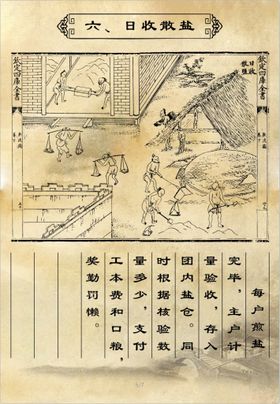 六、日收散盐
钦定四库全书
日收散盐
钦定四库全书
每户煎盐
完毕，主户计
量验收，存入
团内盐仓。同
时根据核验数
量多少，支付
工本费和口粮，
奖勤罚懒。